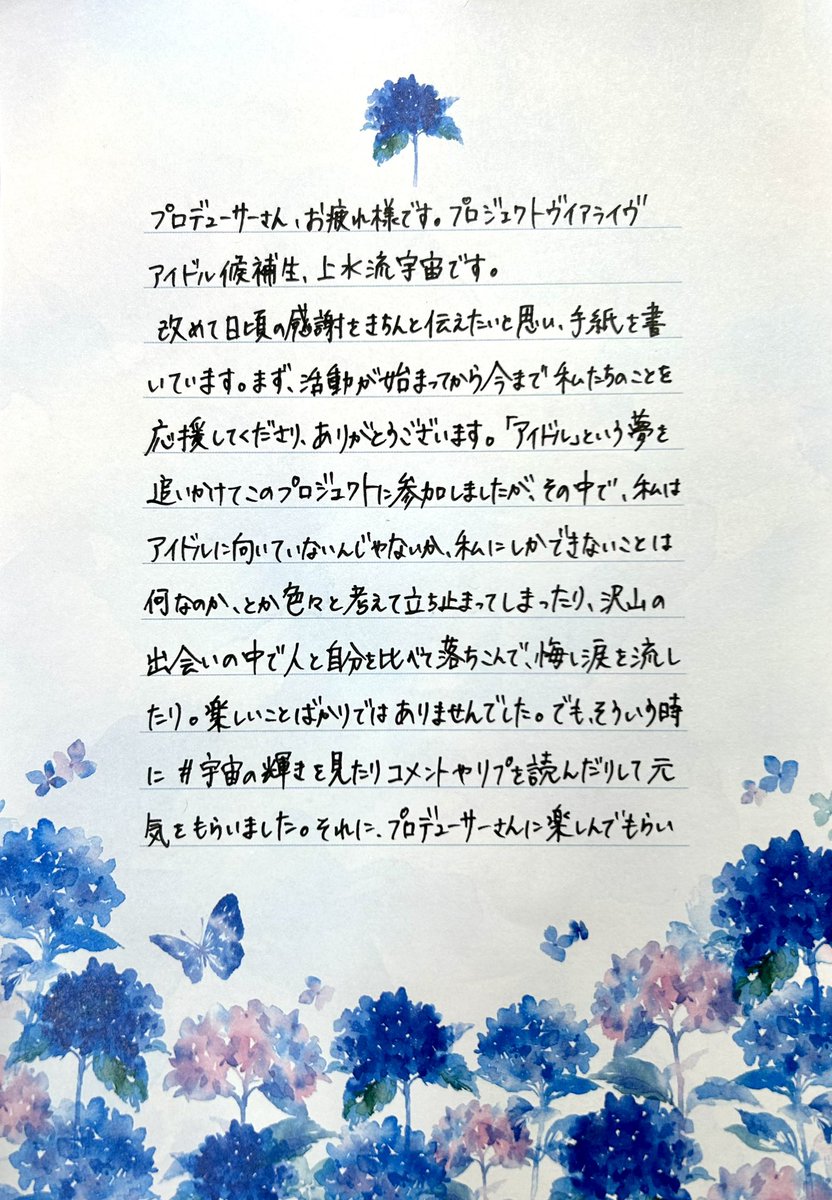 プロデューサーさん、お疲れ様です。プロジェクトヴイアライヴ
アイドル候補生、上水流宇宙です。
改めて日頃の感謝をきちんと伝えたいと思い、手紙を書
いています。まず、活動が始まってから今まで私たちのことを
応援してくださり、ありがとうございます。「アイドル」という夢を
追いかけてこのプロジェクトに参加しましたが、その中で、私は
アイドルに向いていないんじゃないか、私にしかできないことは
何なのか、とか色々と考えて立ち止まってしまったり、沢山の
出会いの中で人と自分を比べて落ちこんで、悔し涙を流し
たり。楽しいことばかりではありませんでした。でも、そういう時
に#宇宙の輝きを見たりコメントやリプを読んだりして元
気をもらいました。それに、プロデューサーさんに楽しんでもらい